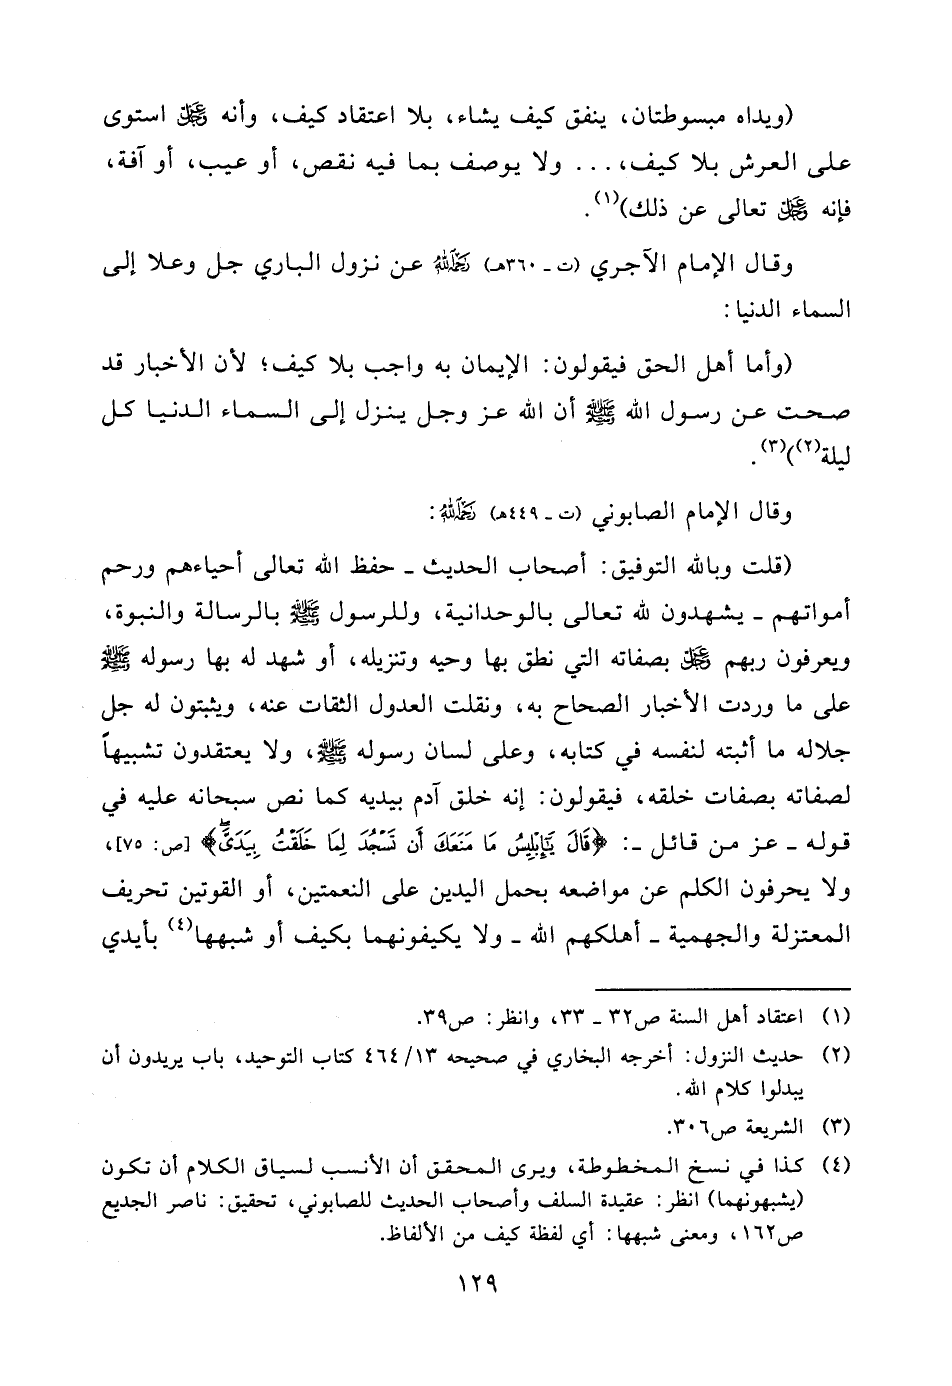 (ويداه مبسوطتان، ينفق كيف يشاء، بلا اعتقاد كيف، وأنه ﷻ استوى
على العرش بلا كيف،... ولا يوصف بما فيه نقص، أو عيب، أو آفة،
فإنه ﷻ تعالى عن ذلك)(١).
وقال الإمام الآجري (ت ـ ٣٦٠هـ) رحمه الله عن نزول الباري جل وعلا إلى
السماء الدنيا:
(وأما أهل الحق فيقولون: الإيمان به واجب بلا كيف؛ لأن الأخبار قد
صحت عن رسول الله ﷺ أن الله عز وجل ينزل إلى السماء الدنيا كل
ليلة(٢))(٣).
وقال الإمام الصابوني (ت ـ ٤٤٩هـ) رحمه الله:
(قلت وبالله التوفيق: أصحاب الحديث ـ حفظ الله تعالى أحياءهم ورحم
أمواتهم ـ يشهدون لله تعالى بالوحدانية، وللرسول ﷺ بالرسالة والنبوة،
ويعرفون ربهم ﷻ بصفاته التي نطق بها وحيه وتنزيله، أو شهد له بها رسوله ﷺ
على ما وردت الأخبار الصحاح به، ونقلت العدول الثقات عنه، ويثبتون له جل
جلاله ما أثبته لنفسه في كتابه، وعلى لسان رسوله ﷺ، ولا يعتقدون تشبيهاً
لصفاته بصفات خلقه، فيقولون: إنه خلق آدم بيديه كما نص سبحانه عليه في
قوله ـ عز من قائل ـ: ﴿قَالَ يَٰٓإِبۡلِيسُ مَا مَنَعَكَ أَن تَسۡجُدَ لِمَا خَلَقۡتُ بِيَدَيَّۖ﴾ [ص: ٧٥]،
ولا يحرفون الكلم عن مواضعه بحمل اليدين على النعمتين، أو القوتين تحريف
المعتزلة والجهمية ـ أهلكهم الله ـ ولا يكيفونهما بكيف أو شبهها(٤) بأيدي
(١) اعتقاد أهل السنة ص٣٢ ـ ٣٣، وانظر: ص٣٩.
(٢) حديث النزول: أخرجه البخاري في صحيحه ١٣/ ٤٦٤ كتاب التوحيد، باب يريدون أن
يبدلوا كلام الله.
(٣) الشريعة ص٣٠٦.
(٤) كذا في نسخ المخطوطة، ويرى المحقق أن الأنسب لسياق الكلام أن تكون
(يشبهونهما) انظر: عقيدة السلف وأصحاب الحديث للصابوني، تحقيق: ناصر الجديع
ص١٦٢، ومعنى شبهها: أي لفظة كيف من الألفاظ.
١٢٩